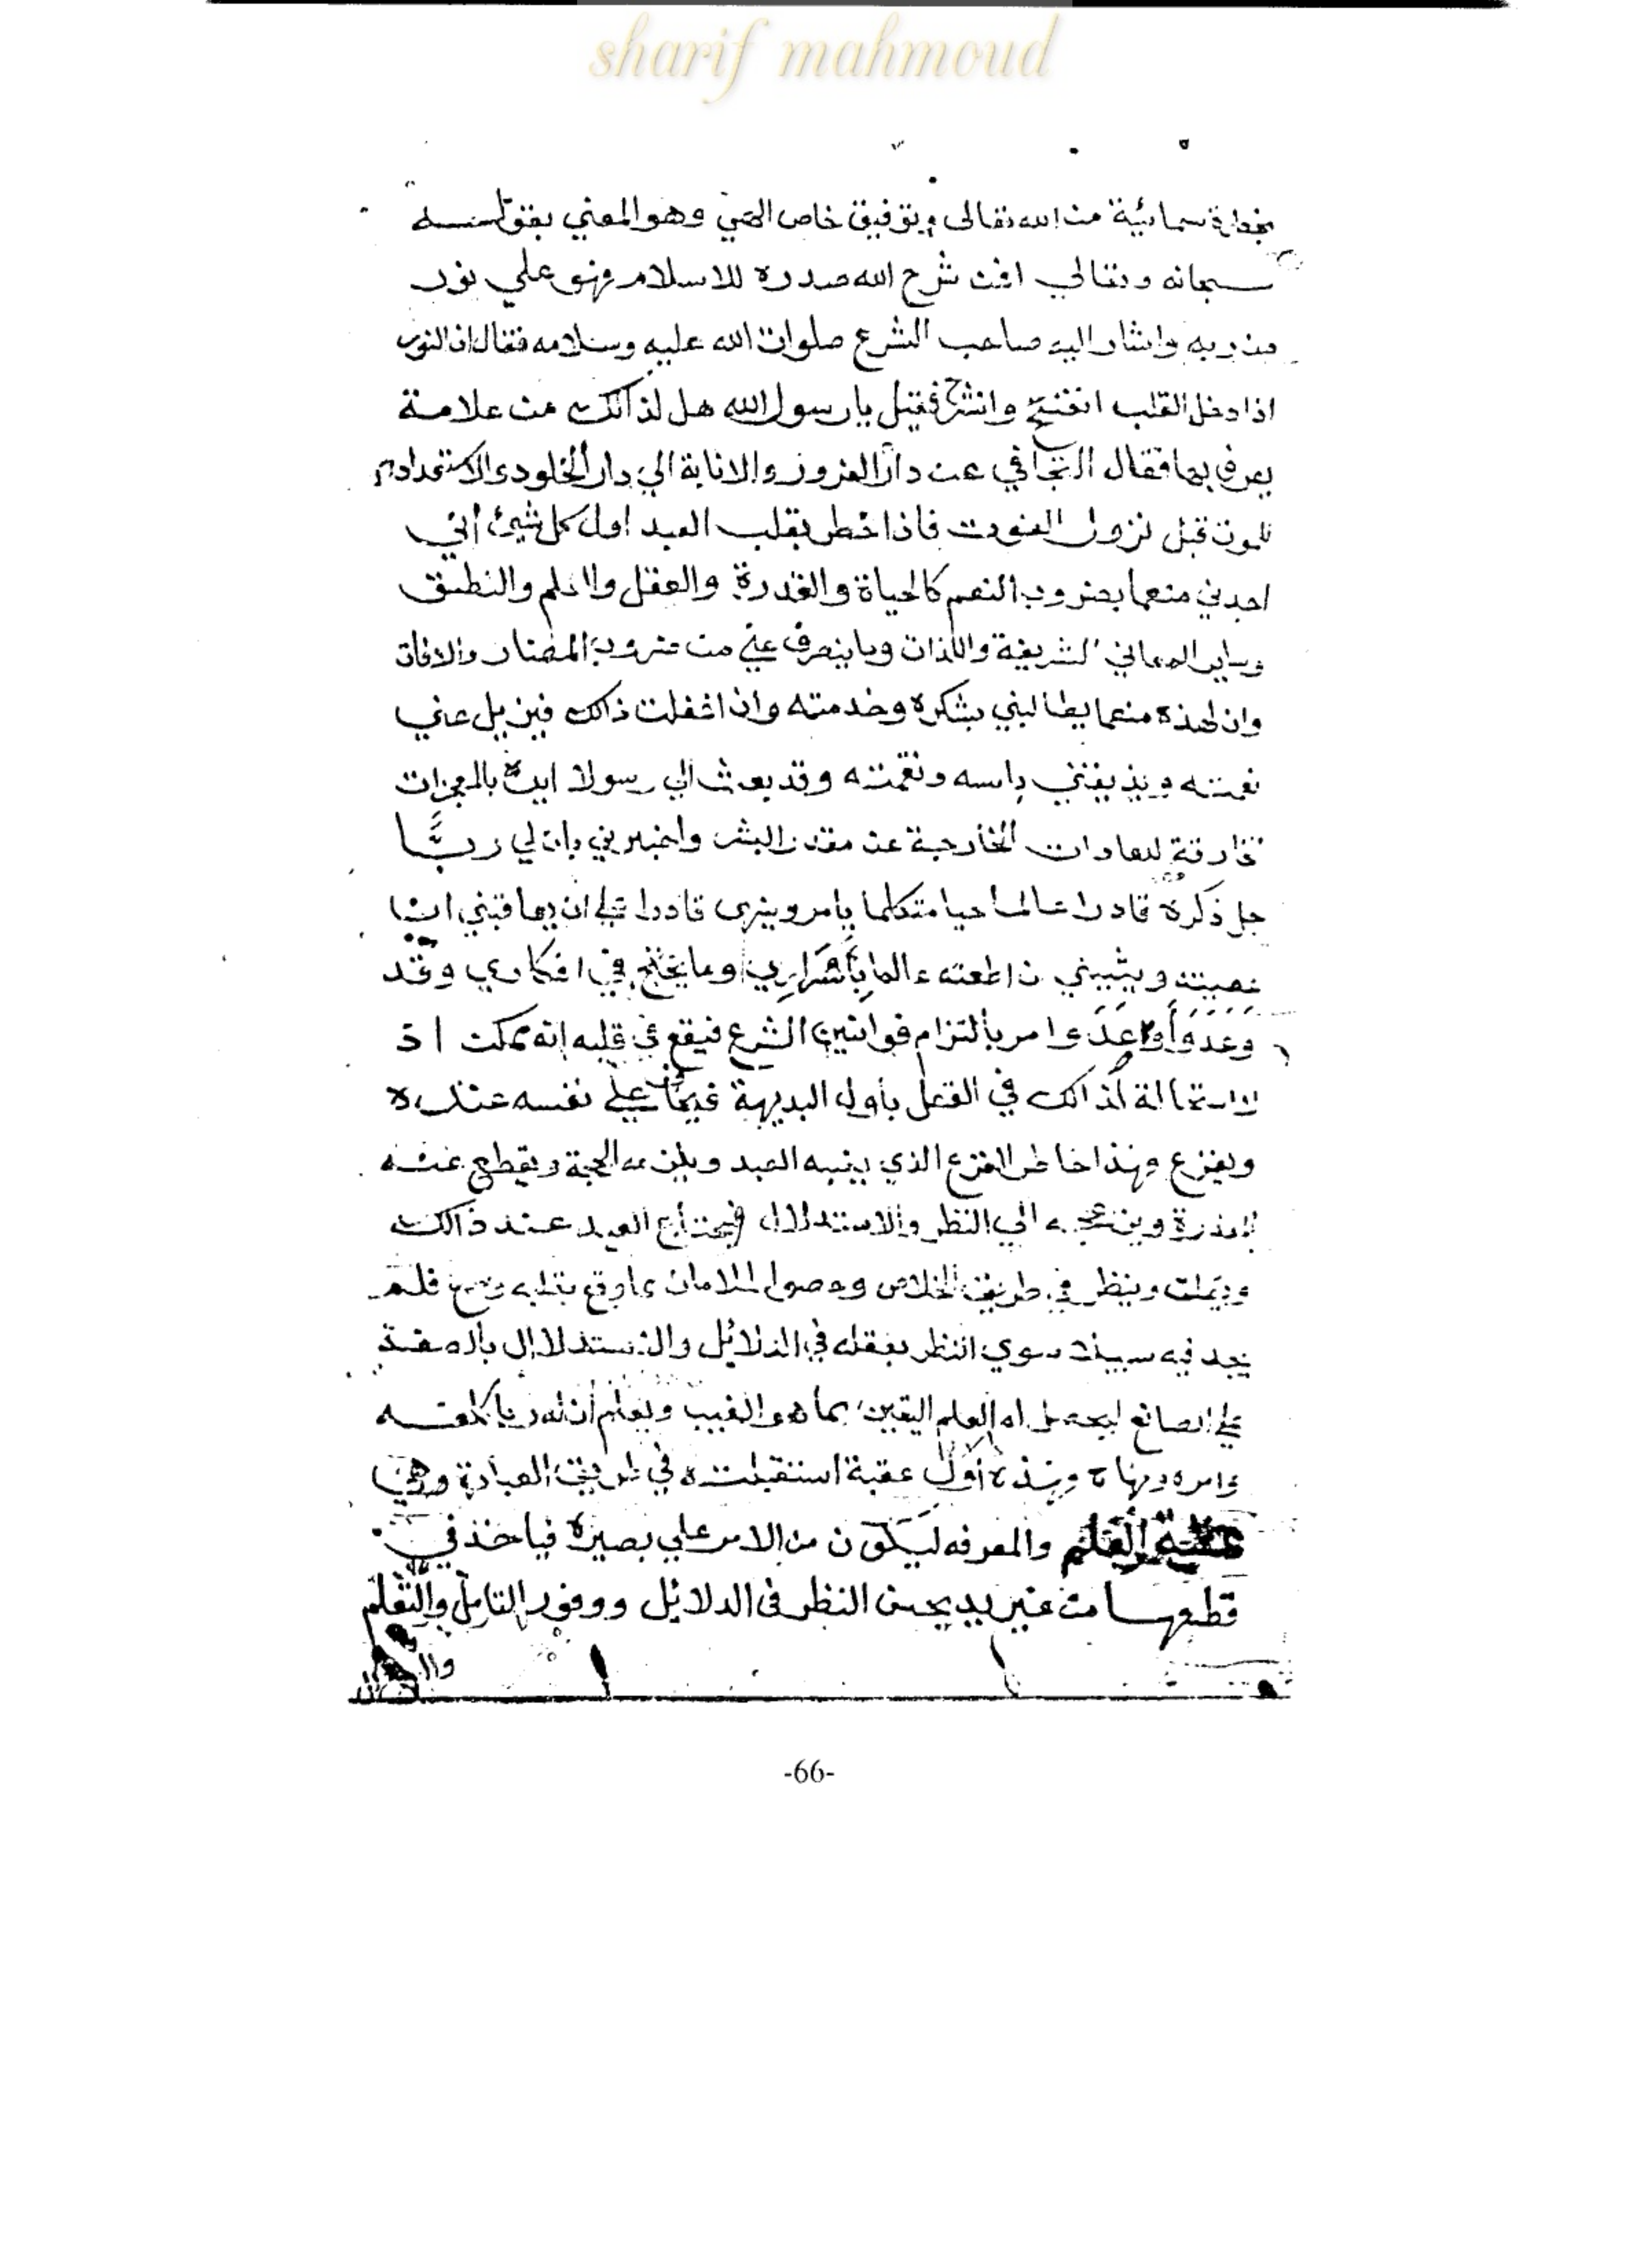 sharif mahmoud
بخطرة سمائية من الله تعالى وبتوفيق خاص الهي وهو المعني بقولسه
سبحانه وتعالي افمن شرح الله صدره للاسلام فهو علي نور
من ربه واشار اليه صاحب الشرع صلوات الله عليه وسلامه فقال ان النور
اذا دخل القلب انفتح وانشرح فقيل يا رسول الله هل لذالك من علامة
يعرف بها فقال التجافي عن دار الغرور والانابة الي دار الخلود والاستعداد
للموت قبل نزول الموت فاذا خطر بقلب العبد اول كل شيئ أني
اجدني منعما بضروب النعم كالحياة والقدرة والعقل والعلم والنطق
وساير المعاني الشريفة واللذات وما ينصرف عني من ضروب المضار والافات
وان لهذه منعما يطالبني بشكره وخدمته وان اغفلت ذالك فيزيل عني
نعمته ويذيقني باسه ونقمته وقد بعث الي رسولا ايده بالمعجزات
خارقة للعادات الخارجة عن مقدر البشر واخبرني بان لي ربًّا
جل ذكره قادرا عالما حيا متكلما يامر وينهى قادرا على ان يعاقبني ان
عصيته ويثيبني ان اطعته عالما بأسراري وما يختلج في افكاري وقد
وَعَدَ وأوعد وامر بالتزام قوانين الشرع فيقع في قلبه انه ممكن اذ
لا استحالة لذالك في العقل بأول البديهة فيخاف علي نفسه عنده
ويفزع فهذا خاطر الفزع الذي ينبه العبد ويلزمه الحجة ويقطع عنه
المعذرة ويزعجه الي النظر والاستدلال فيحتاج العبد عند ذالك
وينظر في طريق الخلاص وحصول الامان مما وقع بقلبه فلم
يجد فيه سبيلا سوي النظر بعقله في الدلائل والاستدلال بالصنعة
على الصانع ليحصل له العلم اليقين بما هو الغيب ويعلم أن له ربا كلفه
وامره ونهاه وهذه أول عقبة استقبلته في طريق العبادة وهي
عقبة العلم والمعرفه ليكون من الامر علي بصيرة فياخذ في
قطعها من غير بد بحسن النظر في الدلائل ووفور التامل والتعلم
-66-